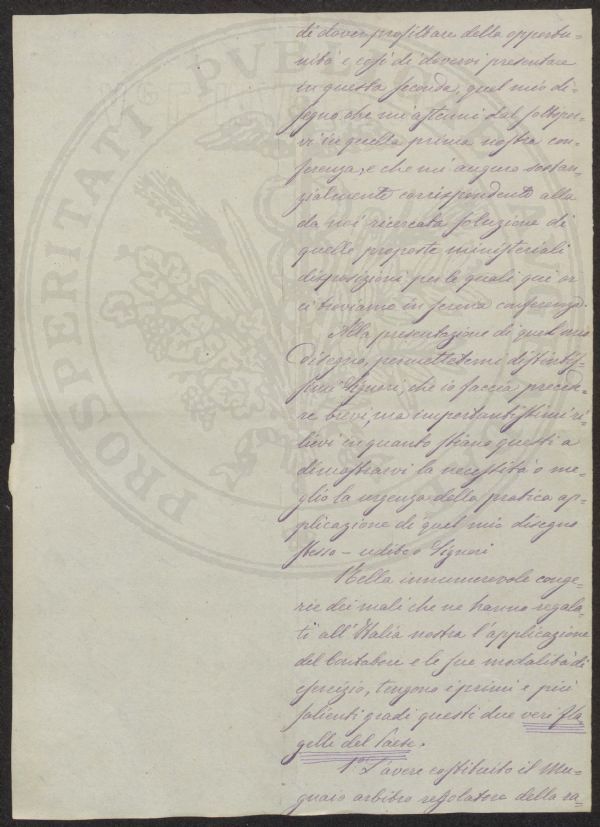 PROSPERITATI PVBLICAE
di dover profittare della opportu=
nità e così di dovervi presentare
in questa seconda, quel mio di=
segno che mi astenni dal sottopor=
vi in quella prima nostra con=
ferenza, e che mi auguro sostan=
zialmente corrispondente alla
da noi ricercata soluzione di
quelle proposte ministeriali
disposizioni per le quali qui or
ci troviamo in serena conferenza.
Alla presentazione di quel mio
disegno, permettetemi distintis=
simi Signori, che io faccia prece=
re brevi, ma importantissimi ri=
lievi in quanto stiano questi a
dimostrarvi la necessità o me=
glio la urgenza della pratica ap=
plicazione di quel mio disegno
stesso – udite o Signori
Nella innumerevole conge=
rie dei mali che ne hanno regala=
ti all'Italia nostra l'applicazione
del Contatore e le sue modalità di
esercizio, tengono i primi e più
salienti gradi questi due veri fla=
gelli del Paese.
1º L'avere costituito il Mu=
gnaio arbitro regolatore della ra=